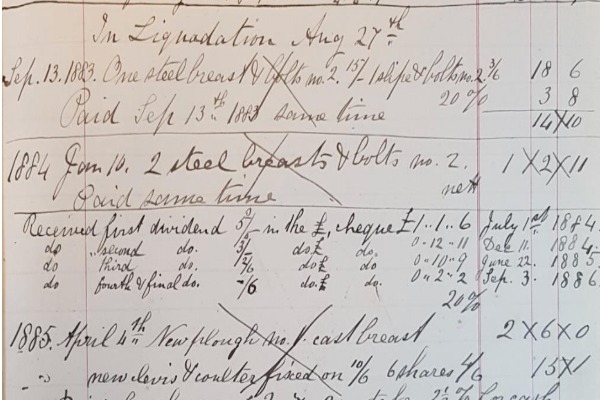 In Liquadation Aug 27th
Sep. 13. 1883. One steel breast & bolts no. 2. 15/- 1 slipe & bolts no. 2. 3/6 18 6
20% 3 8
Paid Sep 13th 1883 same time 14 10
1884 Jan 10. 2 steel breasts & bolts no. 2. 1 2 11
nett
Paid same time
Received first dividend 5/- in the £, cheque £1..1..6 July 1st 1884.
do " second do. 3/- do £ do. 0-12-11 Dec 11. 1884.
do third do. 2/6 do £ do. 0"10"9 June 22. 1885
do fourth & final do. -/6 do. £ do. 0"2"2 Sep. 3. 1886
20%
1885. April 4th New plough no. 1. cast breast 2 6 0
" " new clevis & coulter fixed on 10/6 6 shares 4/6 15 1